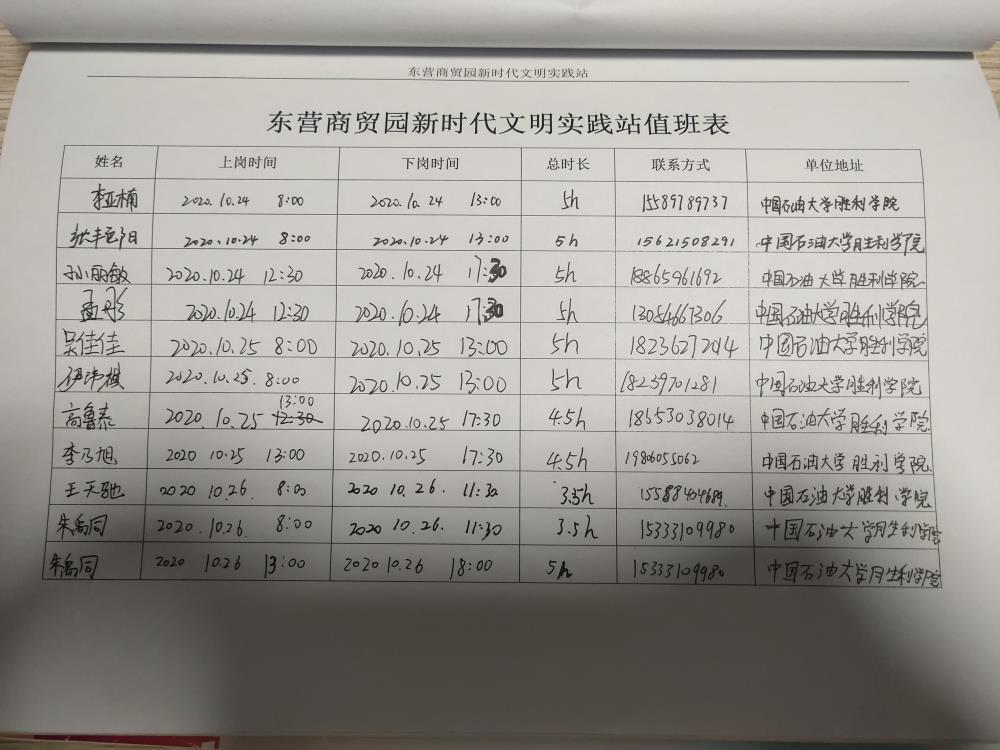 东营商贸园新时代文明实践站
东营商贸园新时代文明实践站值班表
姓名 上岗时间 下岗时间 总时长 联系方式 单位地址
李亚楠 2020.10.24 8:00 2020.10.24 13:00 5h 15589789737 中国石油大学胜利学院
2020.10.24 8:00 2020.10.24 13:00 5h 15621508291 中国石油大学胜利学院
孙丽敏 2020.10.24 12:30 2020.10.24 17:30 5h 18865961692 中国石油大学胜利学院
孟彤 2020.10.24 12:30 2020.10.24 17:30 5h 13054667306 中国石油大学胜利学院
吴佳佳 2020.10.25 8:00 2020.10.25 13:00 5h 18236272014 中国石油大学胜利学院
2020.10.25. 8:00 2020.10.25 13:00 5h 18239701281 中国石油大学胜利学院
高鲁泰 2020.10.25 13:00 2020.10.25 17:30 4.5h 18553038014 中国石油大学胜利学院
李乃旭 2020 10.25 13:00 2020.10.25 17:30 4.5h 19806055062 中国石油大学胜利学院
王天驰 2020 10.26. 8:00 2020 10.26. 11:30 3.5h 15588404689. 中国石油大学胜利学院
朱禹同 2020.10.26. 8:00 2020 10.26. 11:30 3.5h 15333109980 中国石油大学胜利学院
朱禹同 2020 10.26 13:00 2020 10.26 18:00 5h 15333109980 中国石油大学胜利学院